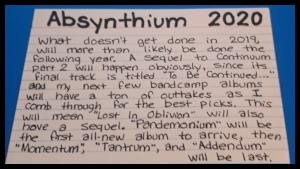 Absynthium 2020
What doesn't get done in 2019,
will more than likely be done the
following year. A Sequel to Continuum
part 2 will happen obviously, since its
final track is titled "To Be Continued..."
and my next few bandcamp albums
will have a ton of outtakes as I
comb through for the best picks. This
will mean "Lost In Oblivion" will also
have a sequel. "Pandemonium" will be
the first all-new album to arrive, then
"Momentum", "Tantrum", and "Addendum"
will be last.